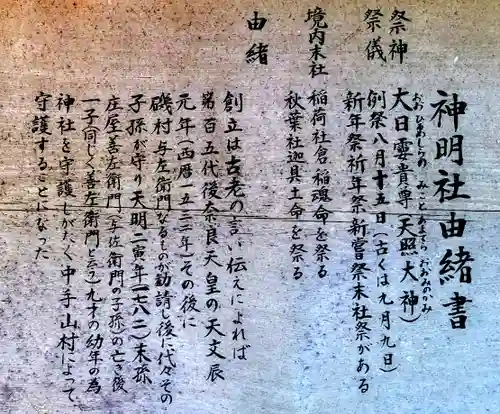 神明社由緒書
祭神
大日孁貴尊(天照大神)
おおひるめむちのみことあまてらすおおみのかみ
祭儀
例祭八月十五日(古くは九月九日)
新年祭祈年祭新嘗祭末社祭がある
境内末社
稲荷社倉稲魂命を祭る
秋葉社迦具土命を祭る
由緒
創立は古老の言い伝えによれば
第百五代後奈良天皇の天文辰
元年(西暦一五三二年)その後に
磯村与左衛門なるものが勧請し後に代々その
子孫が守り天明二寅年(一七八二)末孫
庄屋善左衛門(与佐衛門の子孫)の亡き後
一子(同じく善左衛門と云う)九才の幼年の為
神社を守護しがたく中手山村によって
守護することになった